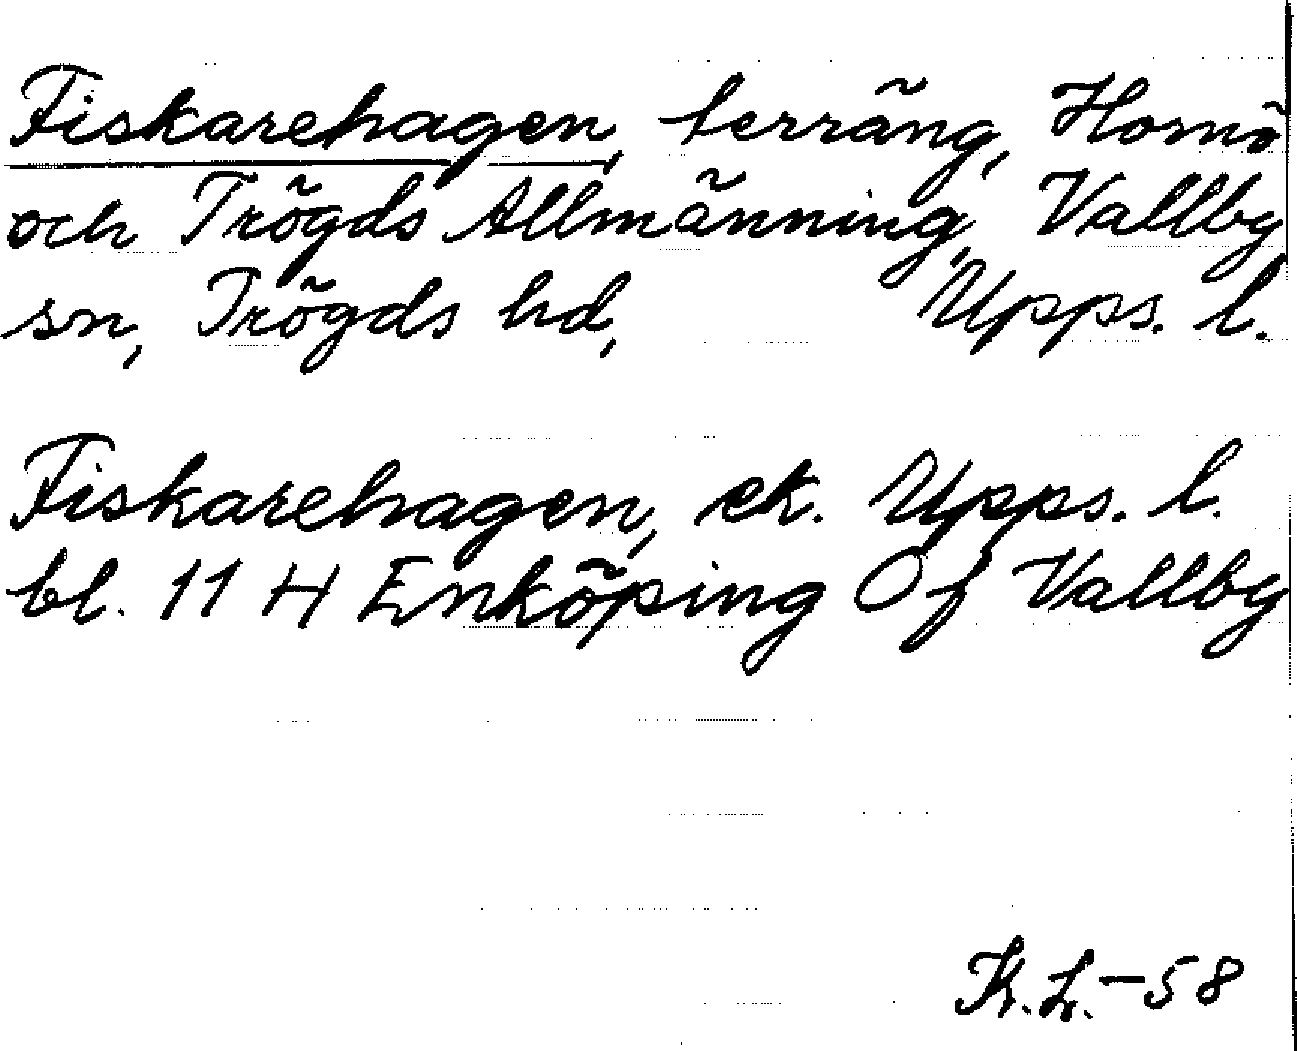 Fiskarehagen, terräng, Hornö
och Trögds Allmänning, Vallby
sn, Trögds hd, Upps. l.
Fiskarehagen, ek. Upps. l.
bl. 11 H Enköping Of Vallby
K.L.-58